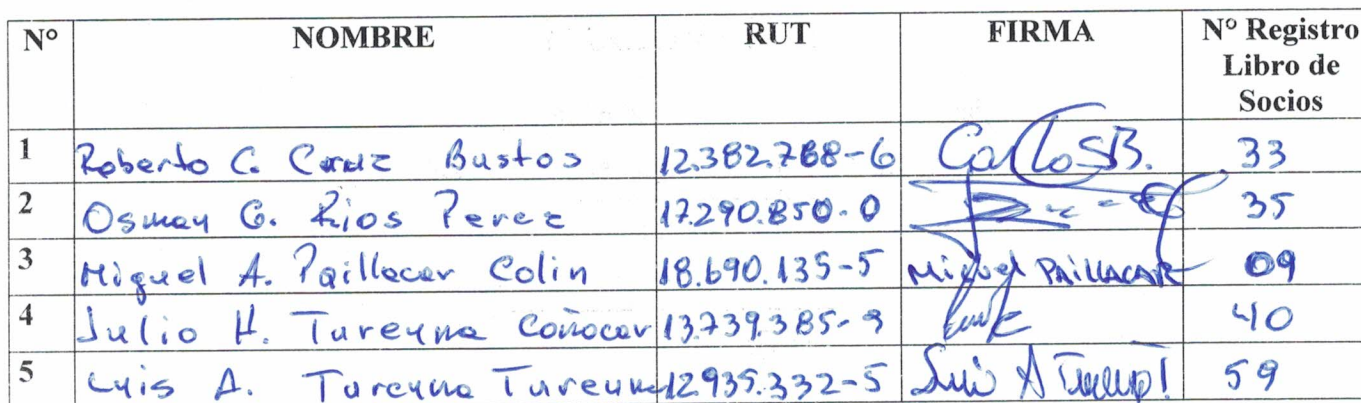 N° NOMBRE RUT FIRMA N° Registro
Libro de
Socios
1 Roberto C. Cruz Bustos 12.382.788-6 Carlos B. 33
2 Osman G. Rios Perez 17.290.850-0 35
3 Miguel A. Paillacar Colin 18.690.135-5 Miguel PAILLACAR 09
4 Julio H. Tureuna Coñocar 13.739.385-9 40
5 Luis A. Tureuna Tureuna 12.935.332-5 Luis A 59